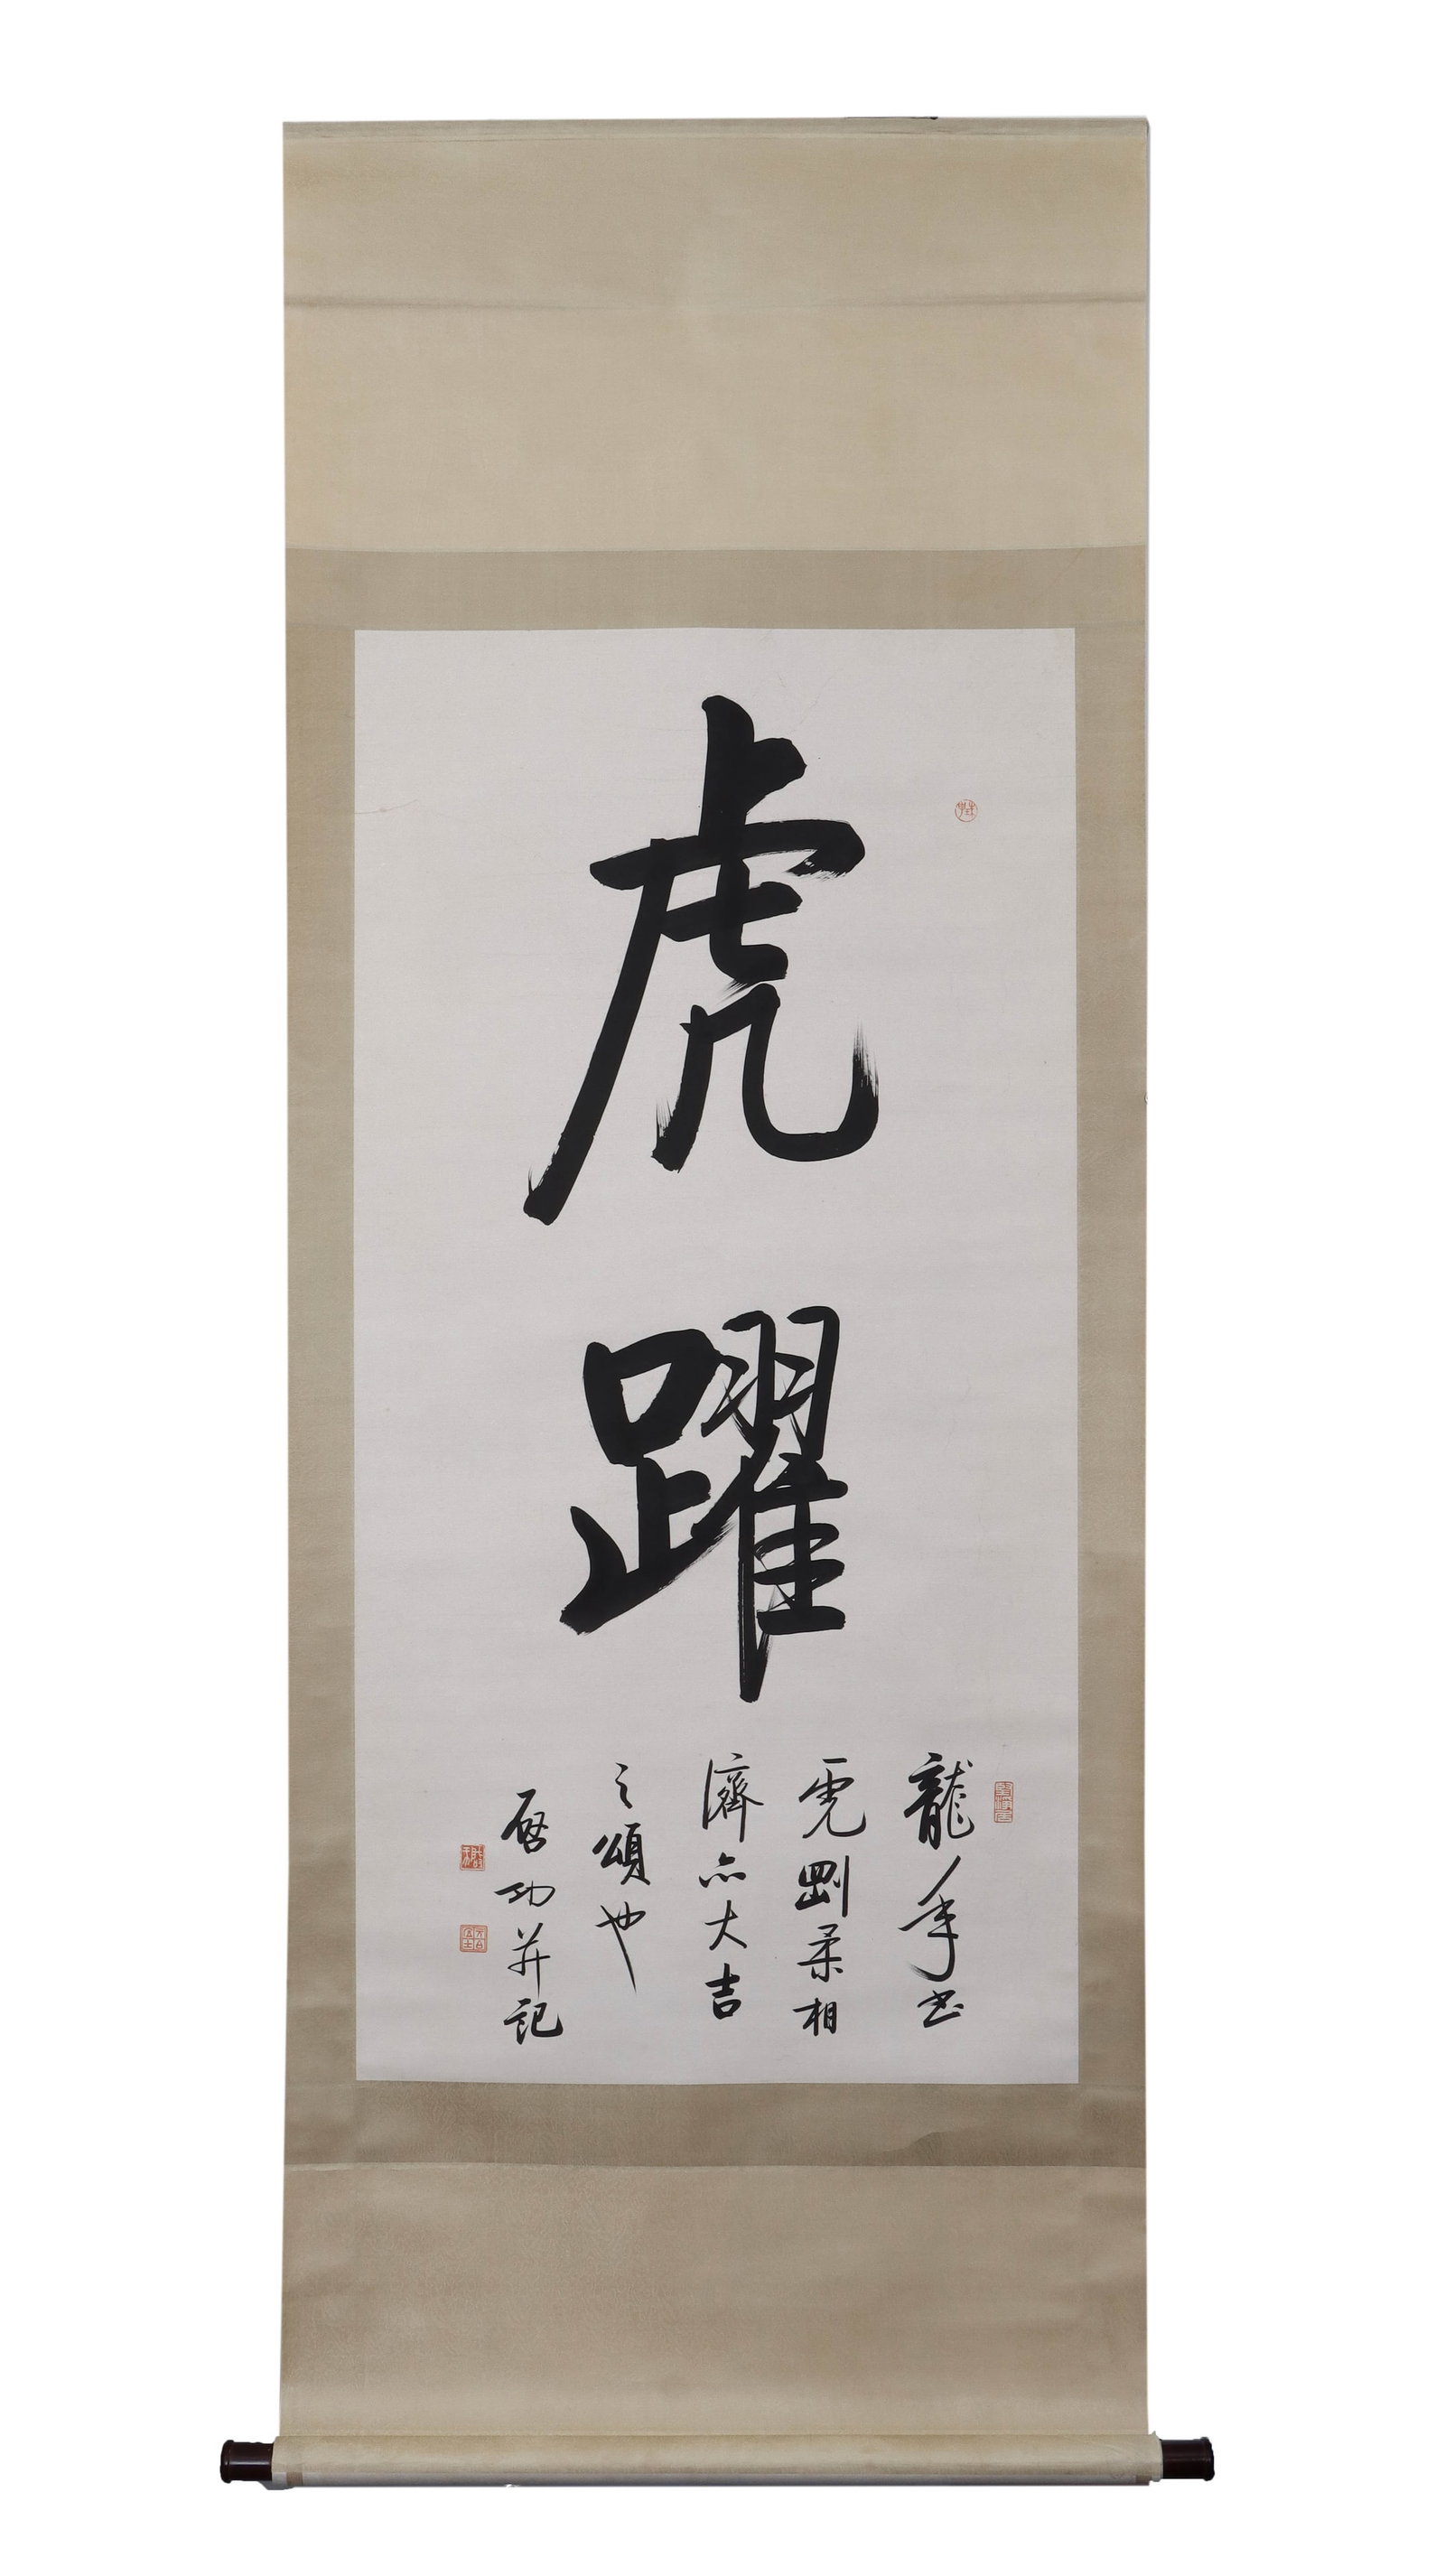 虎躍
龍年書
虎剛柔相
濟亦大吉
之頌也
啟功並記